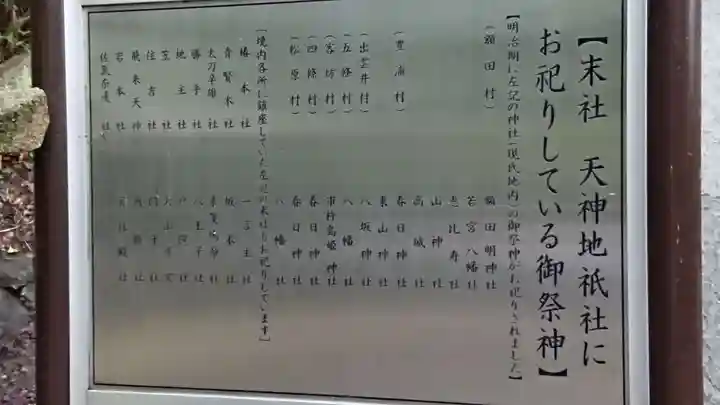 【末社 天神地祇社に
お祀りしている御祭神】
【明治期に左記の神社(現氏地内)の御祭神がお祀りされました】
(額田村) 額田明神社
若宮八幡社
恵比寿社
山神社
高城社
(豊浦村) 春日神社
東山神社
(出雲井村) 八坂神社
(五條村) 八幡社
(客坊村) 市杵島姫神社
(四條村) 春日神社
(松原村) 春日神社
八幡社
【境内各所に鎮座していた左記の末社もお祀りしています】
椿本社 一言主社
青賢木社 坂本社
太刀辛雄社
勝手社 八王子社
地主社 戸隠社
笠社
住吉社
飛来天神社
岩本社
佐氣奈邊社